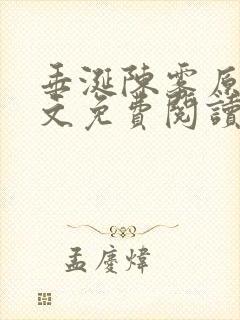 垂涎陳雾原
文免費閱讀
孟慶煒